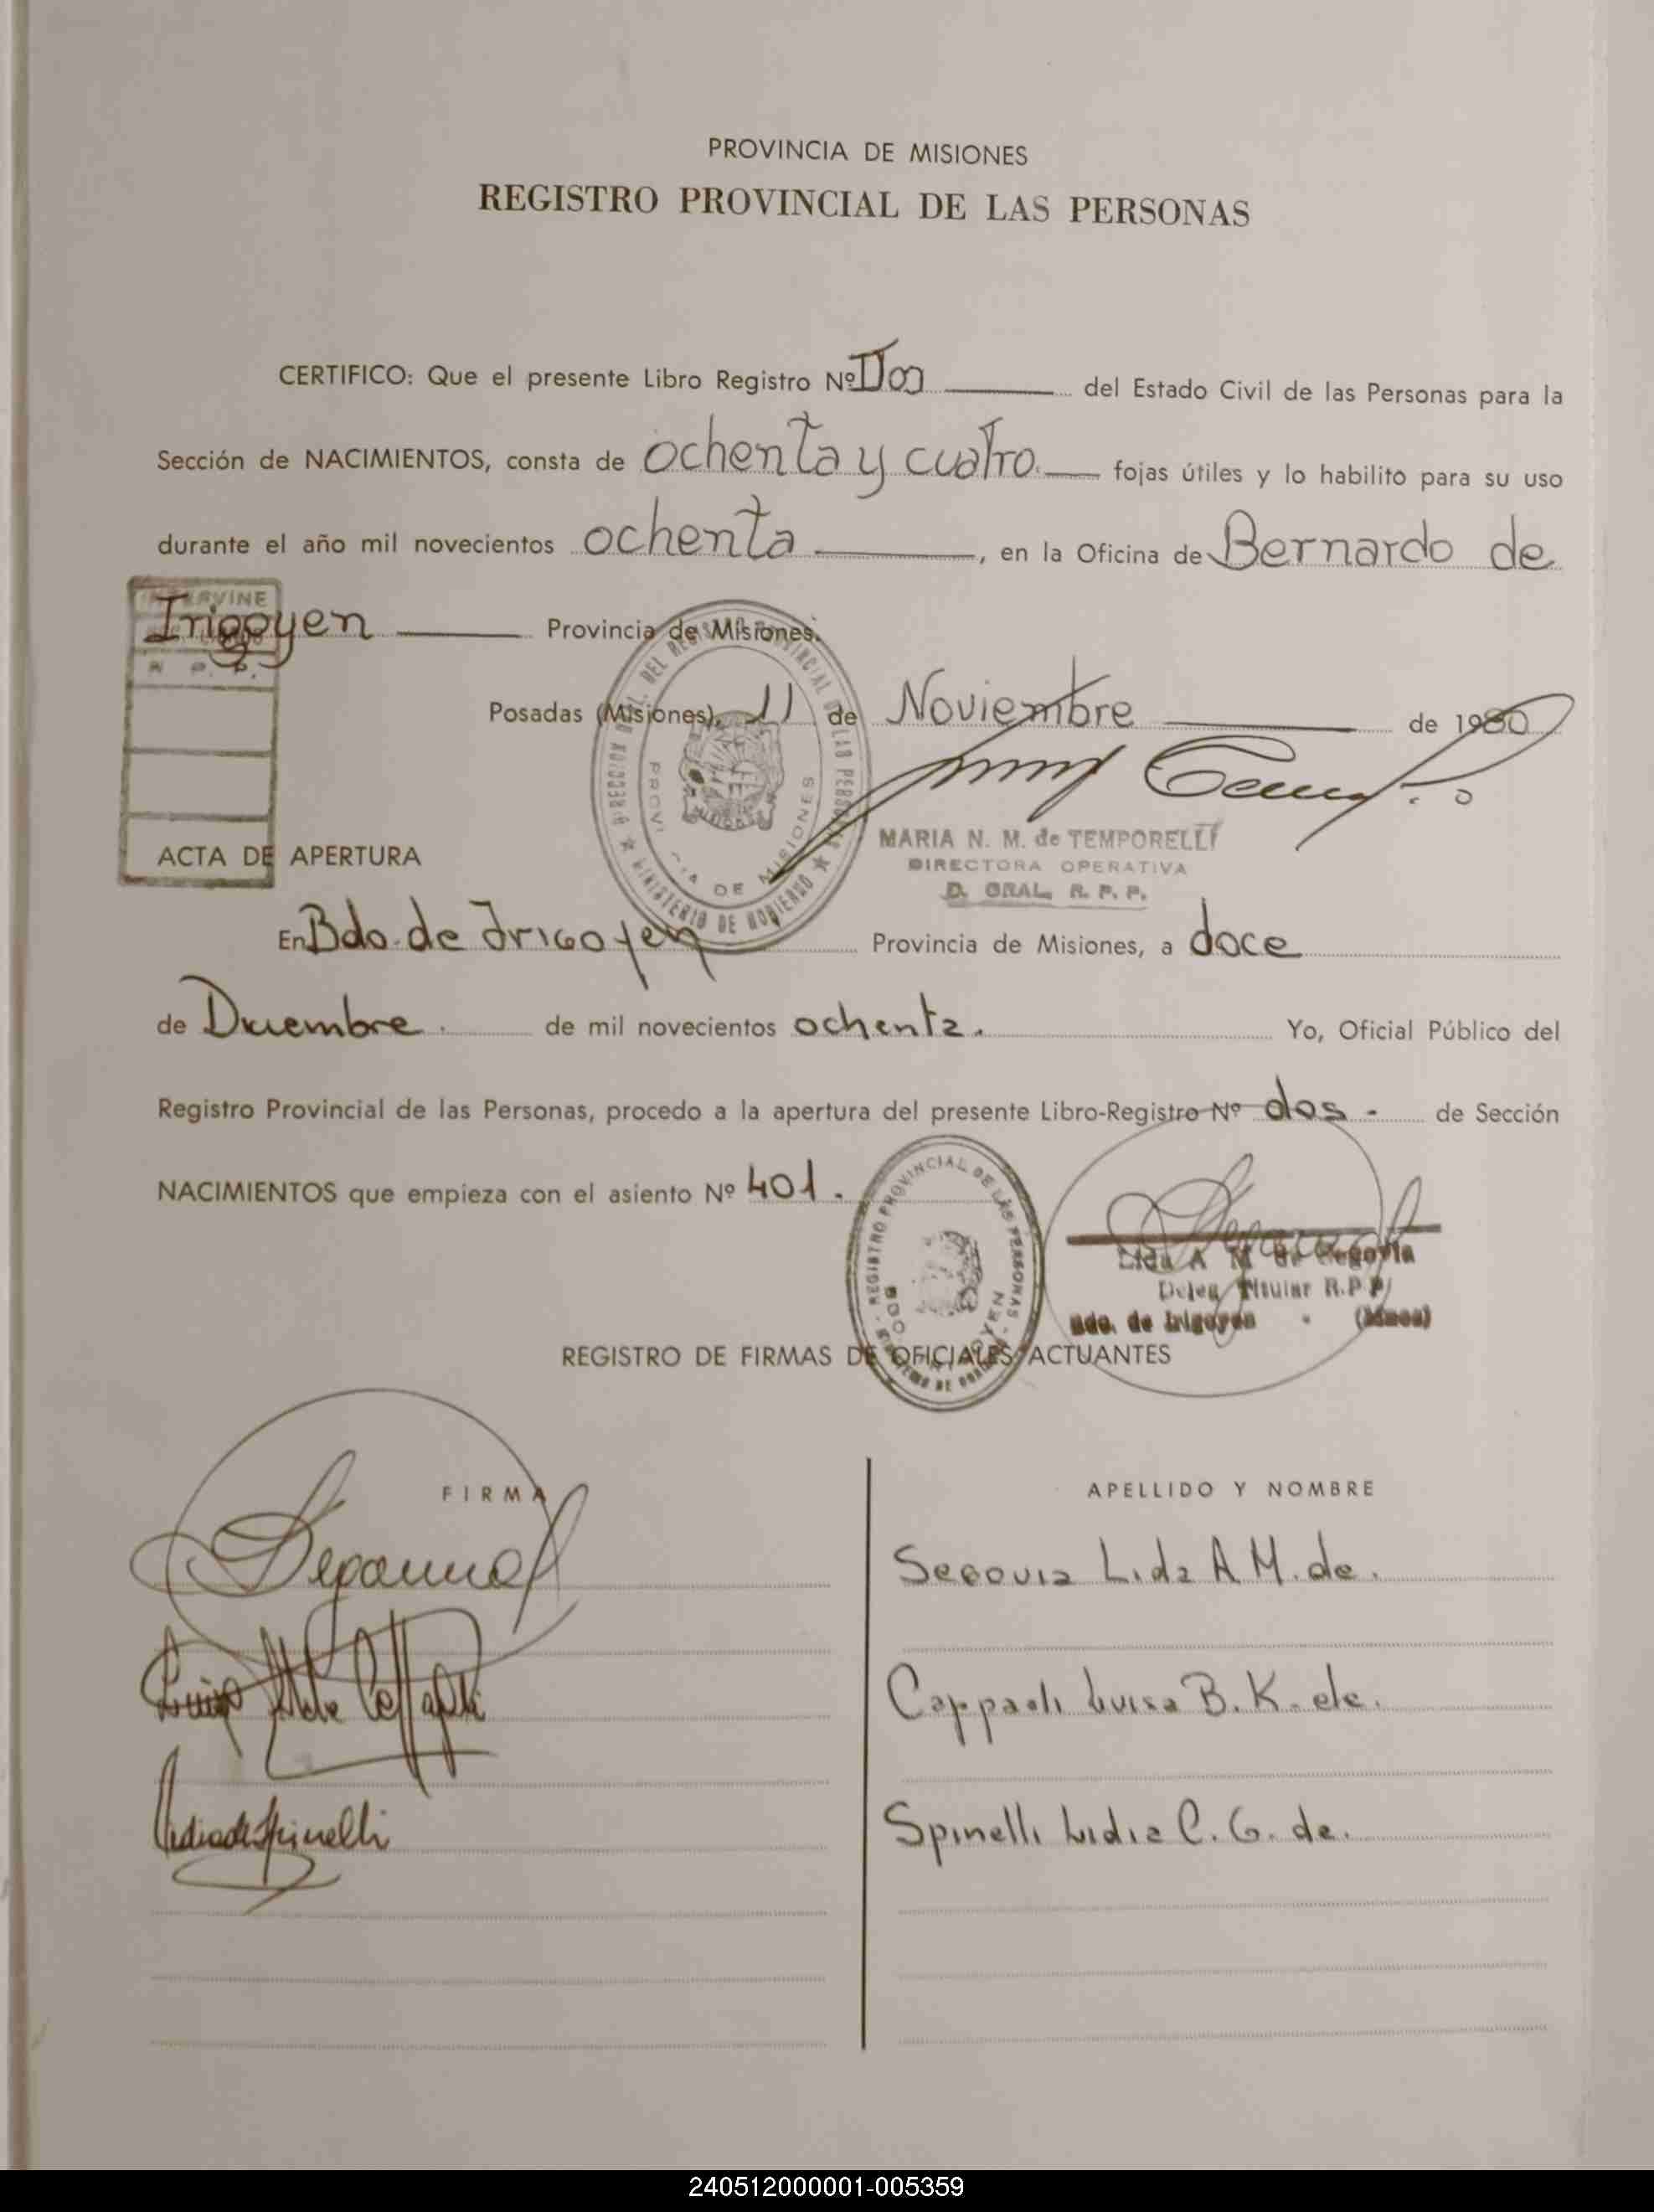 PROVINCIA DE MISIONES
REGISTRO PROVINCIAL DE LAS PERSONAS
CERTIFICO: Que el presente Libro Registro Nº Dos del Estado Civil de las Personas para la
Sección de NACIMIENTOS, consta de ochenta y cuatro. fojas útiles y lo habilito para su uso
durante el año mil novecientos ochenta, en la Oficina de Bernardo de
Irigoyen Provincia de Misiones.
Posadas (Misiones), 11 de Noviembre de 1980
MARIA N. M. de TEMPORELLI
DIRECTORA OPERATIVA
D. GRAL. R. P. P.
ACTA DE APERTURA
En Bdo. de Irigoyen Provincia de Misiones, a doce
de Diciembre. de mil novecientos ochenta. Yo, Oficial Público del
Registro Provincial de las Personas, procedo a la apertura del presente Libro-Registro Nº dos - de Sección
NACIMIENTOS que empieza con el asiento Nº 401.
Lida A M de Segovia
Deleg Titular R.P.P
Bdo. de Irigoyen - (Mnes)
REGISTRO DE FIRMAS DE OFICIALES ACTUANTES
FIRMA APELLIDO Y NOMBRE
Segovia Lida A M. de.
Cappaoli Luisa B. K. de.
Spinelli Lidia C. G. de.
240512000001-005359